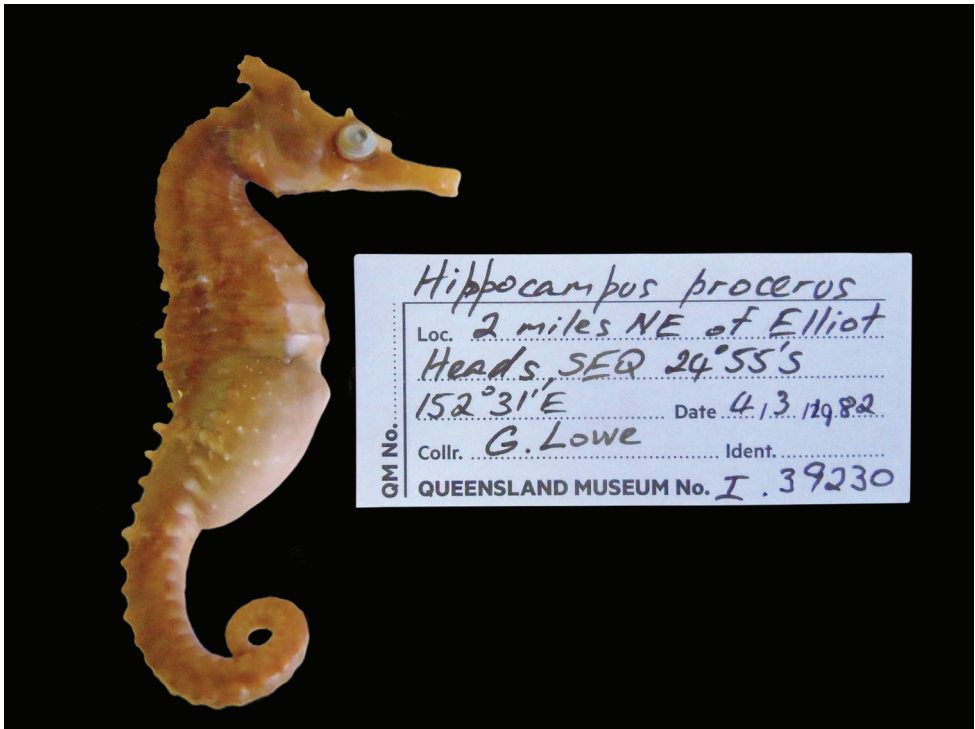 Hippocampus procerus
Loc. 2 miles NE of Elliot
Heads, SEQ 24°55'S
152°31'E Date 4/3/1982
Collr. G. Lowe Ident.
QM No.
QUEENSLAND MUSEUM No. I. 39230